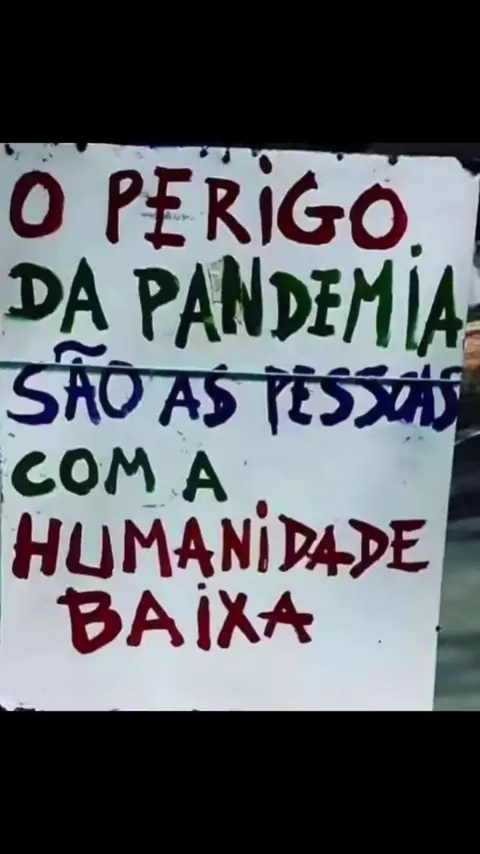 O PERIGO
DA PANDEMIA
SÃO AS PESSOAS
COM A
HUMANIDADE
BAIXA